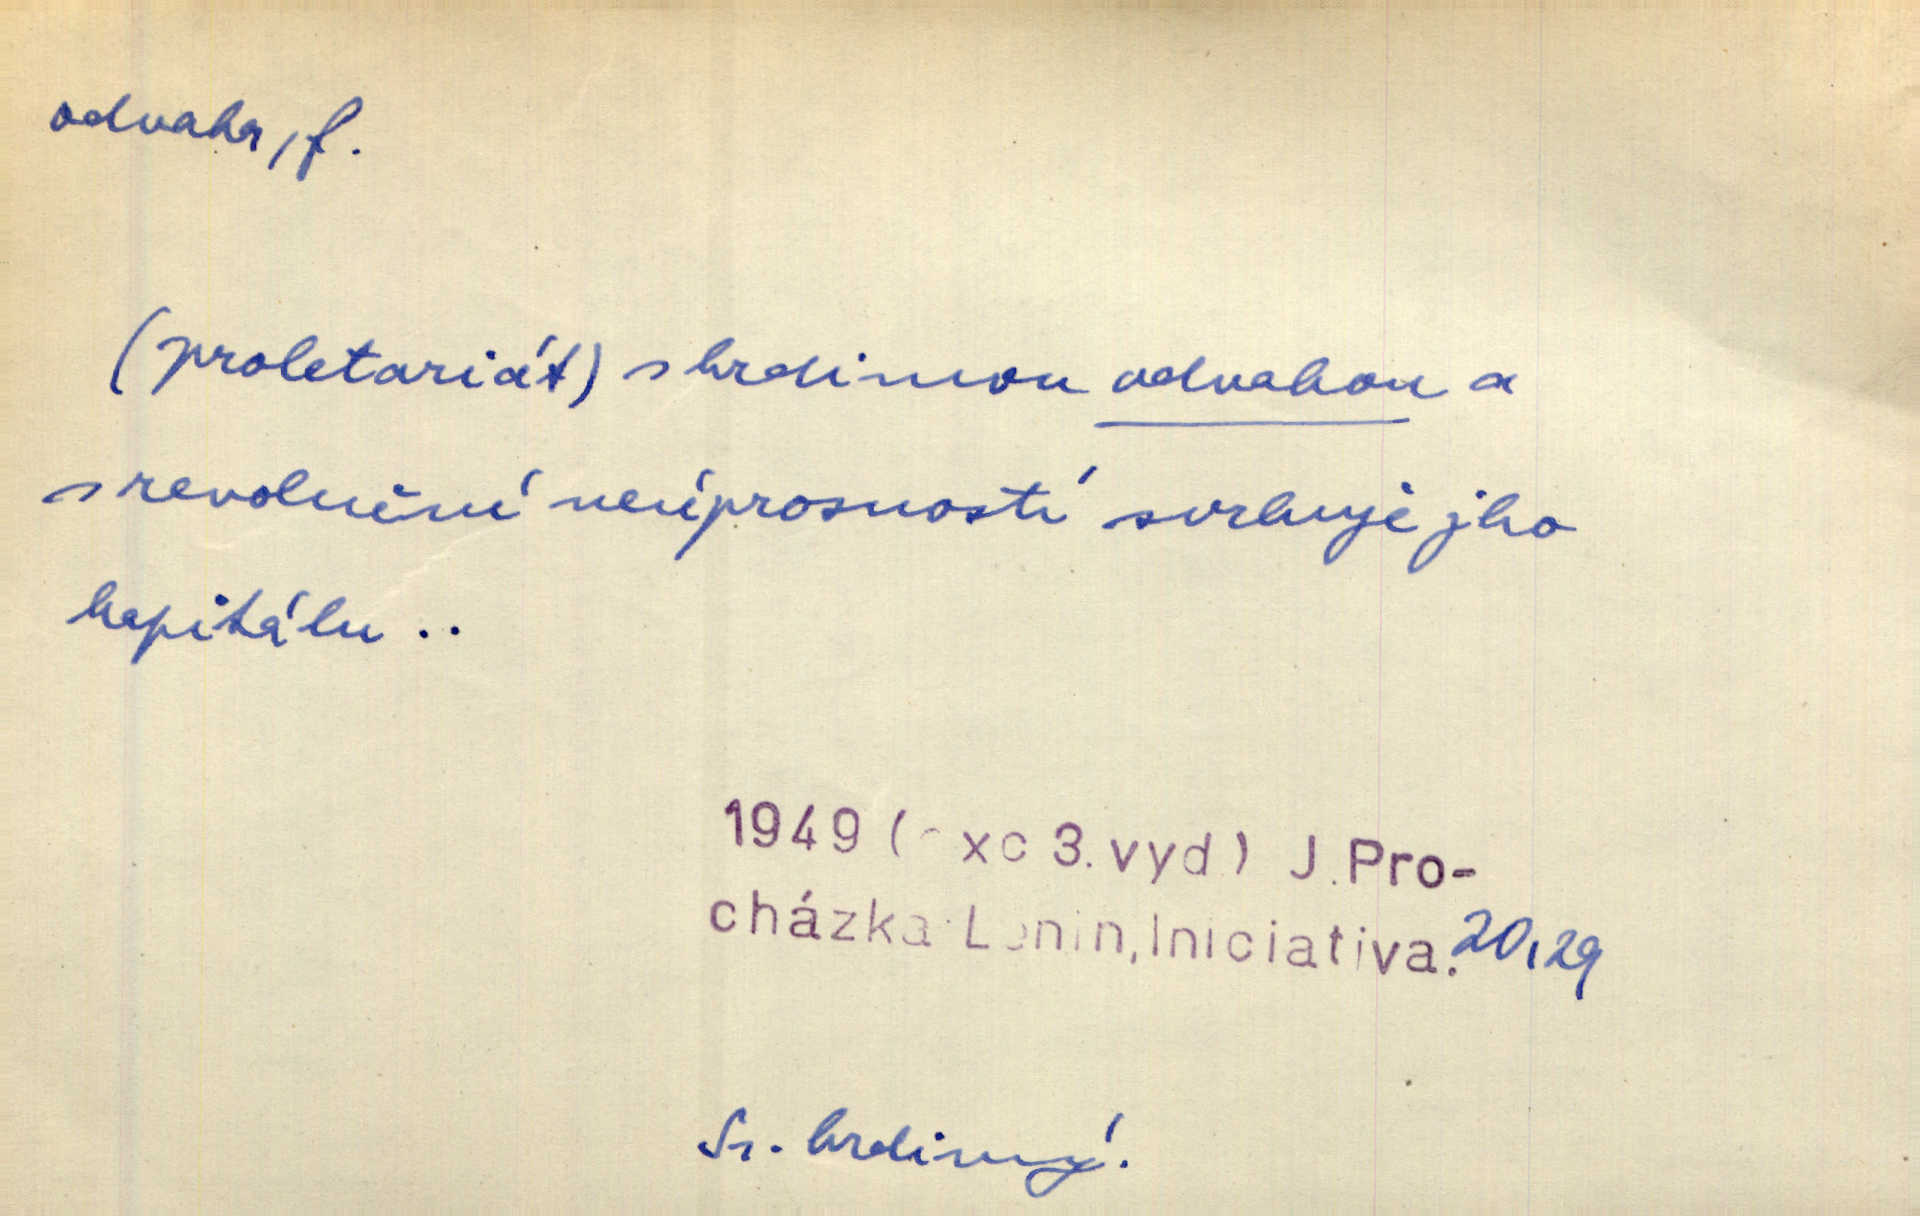 odvaha, f.
(proletariát) s hrdinnou odvahou a
s revoluční neúprosností svrhuje jho
kapitálu ..
1949 (exc 3. vyd.) J. Pro-
cházka Lenin, Iniciativa. 20,29
Sr. hrdinný.